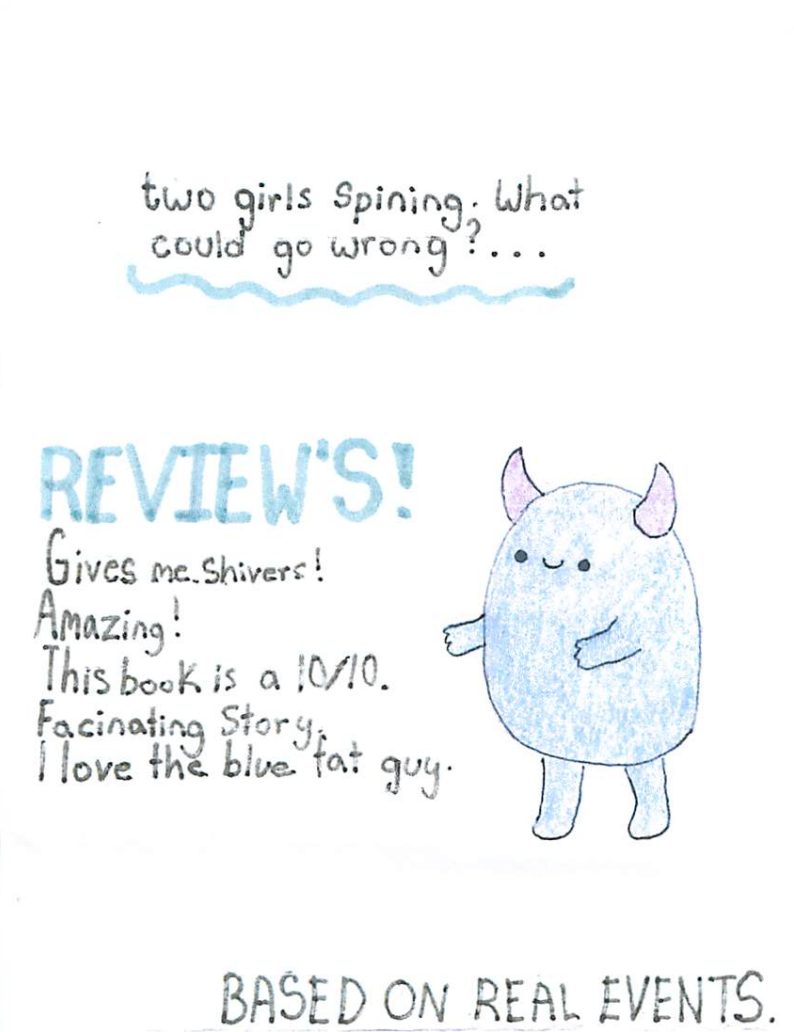 two girls Spining. What
could go wrong?...
REVIEW'S!
Gives me. Shivers!
Amazing!
This book is a 10/10.
Facinating Story.
I love the blue fat guy.
BASED ON REAL EVENTS.